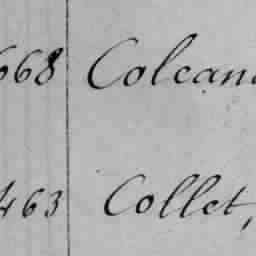 668 Colcan
463 Collet,